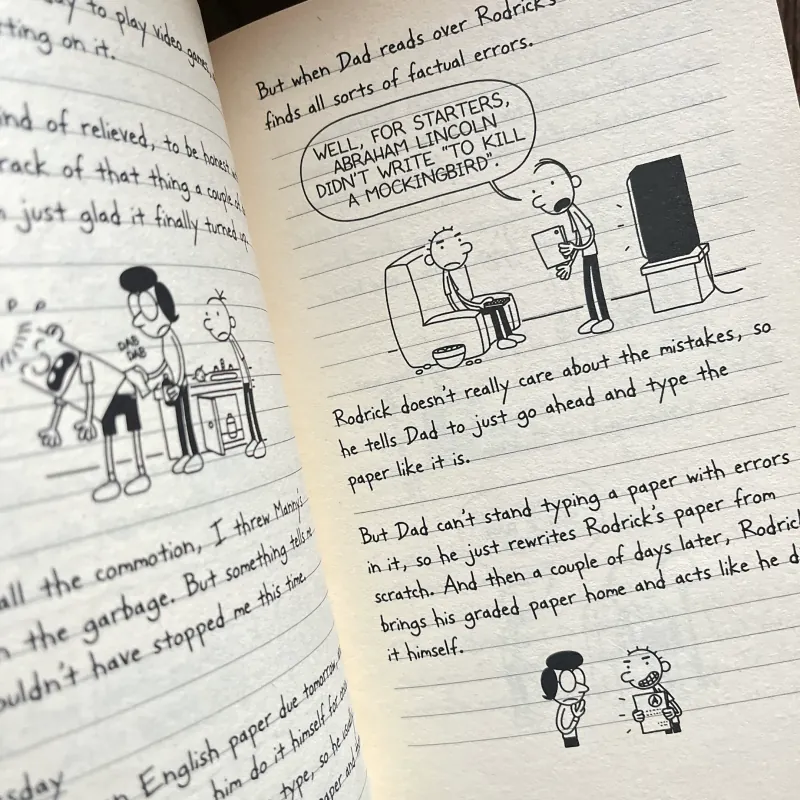 to play video games,
ting on it.
ind of relieved, to be honest,
rack of that thing a couple of
just glad it finally turned up.
DAB
DAB
all the commotion, I threw Manny's
the garbage. But something tells me
ouldn't have stopped me this time.
sday
English paper due tomorrow,
him do it himself for
type, so he
But when Dad reads over Rodrick's
finds all sorts of factual errors.
WELL, FOR STARTERS,
ABRAHAM LINCOLN
DIDN'T WRITE "TO KILL
A MOCKINGBIRD".
Rodrick doesn't really care about the mistakes, so
he tells Dad to just go ahead and type the
paper like it is.
But Dad can't stand typing a paper with errors
in it, so he just rewrites Rodrick's paper from
scratch. And then a couple of days later, Rodrick
brings his graded paper home and acts like he di
it himself.
A